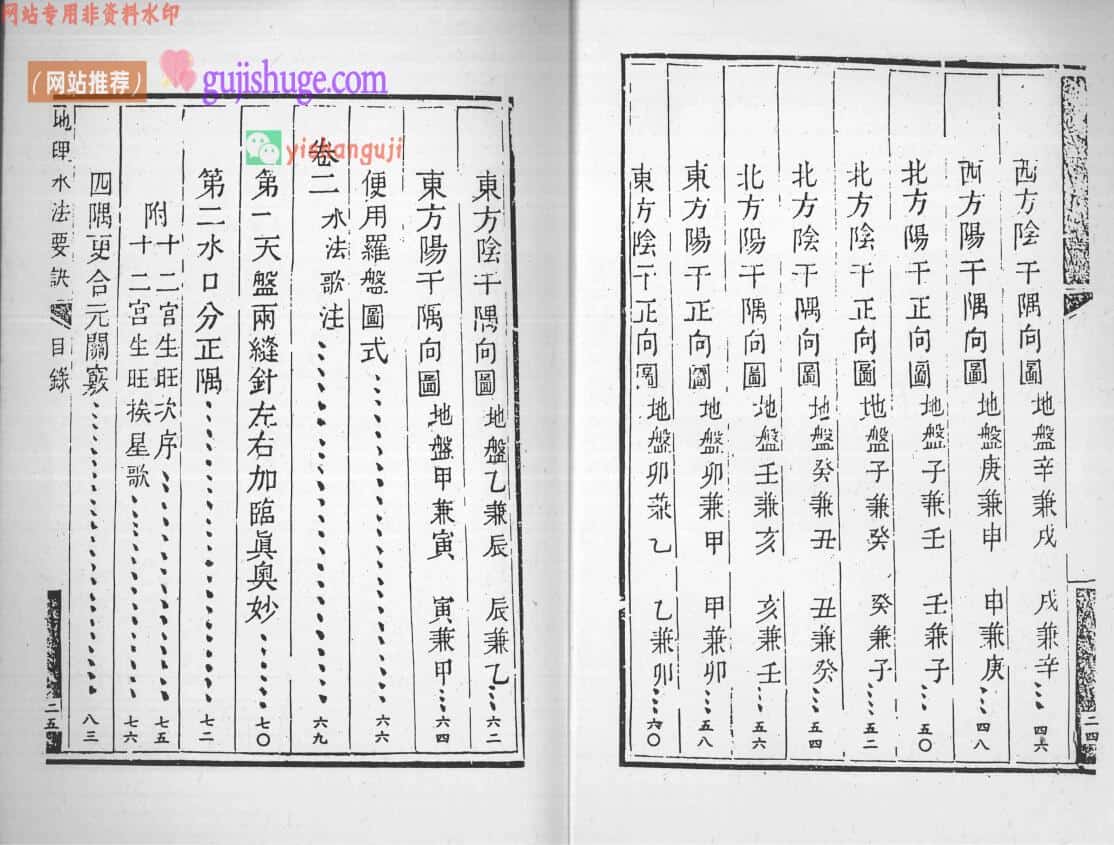 网站专用非资料水印
（网站推荐）
gujishuge.com
yishanguji
西方陰干隅向圖 地盤辛兼戌 戌兼辛 四六
西方陽干隅向圖 地盤庚兼申 申兼庚 四八
北方陽干正向圖 地盤子兼壬 壬兼子 五〇
北方陰干正向圖 地盤子兼癸 癸兼子 五二
北方陰干隅向圖 地盤癸兼丑 丑兼癸 五四
北方陽干隅向圖 地盤壬兼亥 亥兼壬 五六
東方陽干正向圖 地盤卯兼甲 甲兼卯 五八
東方陰干正向圖 地盤卯兼乙 乙兼卯 六〇
二四
東方陰干隅向圖 地盤乙兼辰 辰兼乙 六二
東方陽干隅向圖 地盤甲兼寅 寅兼甲 六四
便用羅盤圖式 六六
卷二 水法歌注 六九
第一天盤兩縫針左右加臨眞奧妙 七〇
第二水口分正隅 七二
附十二宮生旺次序 七五
十二宮生旺挨星歌 七六
四隅更合元關竅 八三
地理水法要訣 目錄
二五